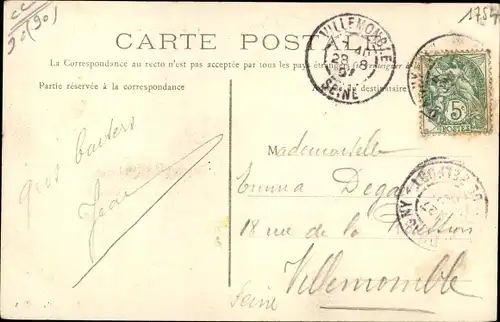 CARTE POSTALE
La Correspondance au recto n'est pas acceptée par tous les pays étrangers
Partie réservée à la correspondance
du destinataire
VILLEMOMBLE
28 -8
SEINE
5c
POSTES
gros baisers
Jean
Mademoiselle
Emma
18 rue de la
Villemomble
Seine